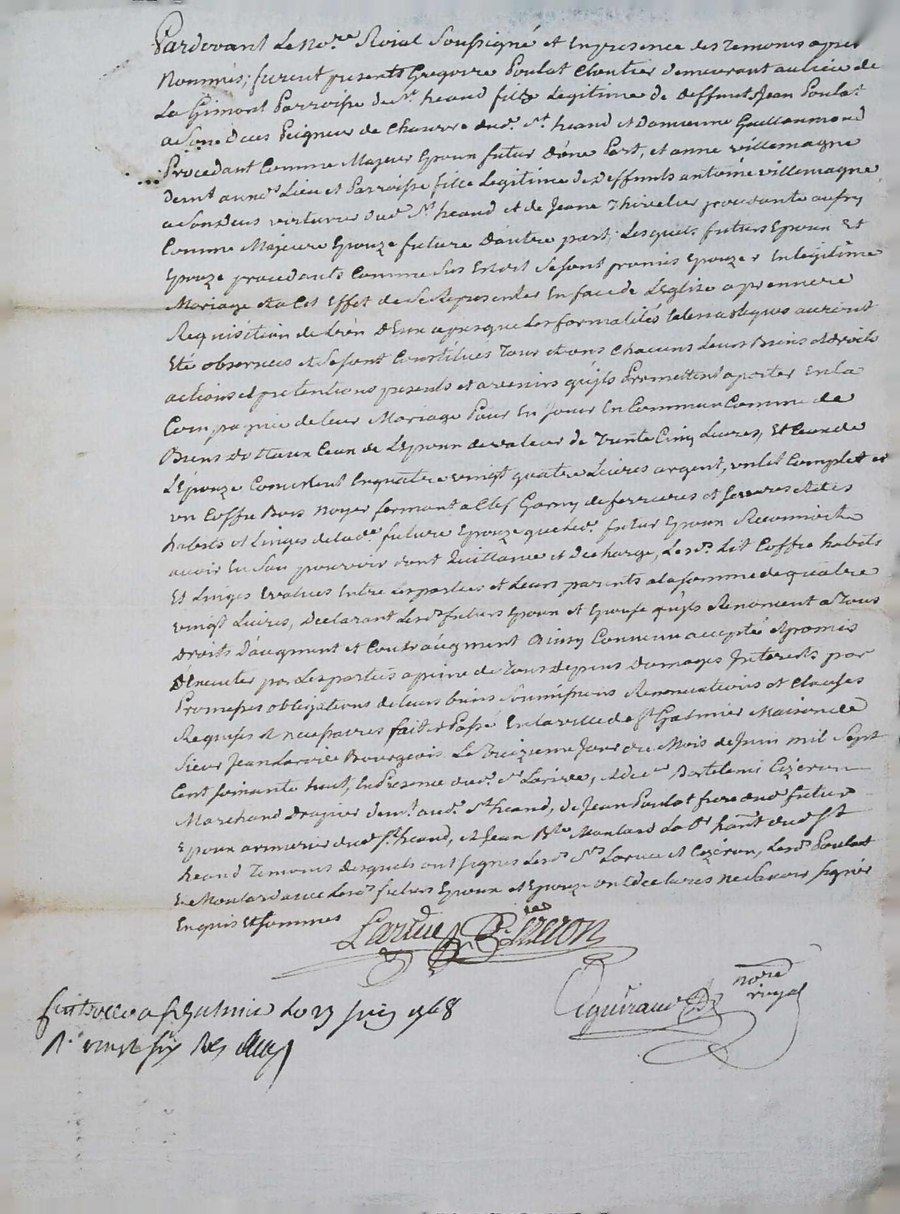 Pardevant Le No.re Roial Soussigné et En presence des Temoins apres
Nommés; furent presents Gregoire Poulat Cloutier demeurant au lieu de
La Gimont Parroisse de S.t heand fils Legitime de deffunt Jean Poulat
a Son Deces Peigneur de Chanvre aud. S.t heand et Damienne
Procedant Comme Majeur Epoux futur D'éne Part, et anne villemagne
Demt aux mes Lieu et Parroisse fille Legitime des Deffunts antoine villemagne
a Son Deces aud. S.t heand et de Jeane Thivelier procedante aussy
Comme Majeure Epouze future D'autre part; Lesquels futurs Epoux Et
Epouze procedants Comme Sus Est dit Se sont promis Epouzer En legitime
Mariage Et a Cet Effet de Se Representer En face de L'église a premiere
Requisition de L'én D'Eux apres que Les formalités auront
Eté observées et Se sont Constitues Tous Et uns Chacuns Leurs Biens et droits
actions et pretentions presents et avenirs qu'ils Promettent aporter En la
Compagnie de leur Mariage Pour En Jouir En Commun Comme de
Biens Dottaux Ceux de L'Epoux de valeur de Trente Cinq Livres, Et Ceux de
L'Epouze Consistent En quatre vingt quatre Livres argent, un lit Complet et
un Coffre Bois Noyer fermant a Clef Garny de ferrures et Serrures et des
habits et Linges de lad.e future Epouze que led. futur Epoux Reconnoit
avoir En Son pouvoir dont Quittance et decharge, Lesd. Lit Coffre habits
Et Linges Evalues Entre Les parties et Leurs parents a la somme de quatre
vingt Livres, Declarant Lesd. futurs Epoux et Epouse qu'ils Renoncent a Tous
Droits D'augment et Contraugment Ainsy Convenu accepté et promis
D'Executer par Les parties a peine de Tous Depens Domages Interets par
Promesses obligations de leurs biens Soumissions Renonciations et Clauses
Requises et necessaires fait et Passé En la ville de S.t Galmier Maison de
Sieur Jean Larivée Bourgeois Le Treizieme Jour du Mois de Juin mil Sept
Cent Soixante huit, En Presence dud. S.r Larivée, et de S.r Bartelemi Cizeron
Marchand Drapier demt aud. S.t heand, de Jean Poulat frere dud. futur
Epoux armurier dud. S.t heand, et Jean B.te Montard Lab.r habt dud. S.t
heand Temoins desquels ont signés Lesd. S.rs Larivée et Cizeron, Lesd. Poulat
Et Montard avec Lesd. futurs Epoux et Epouze ont declarés ne Savoir Signer
Enquis Et Sommés
Larivée B. Cizeron
no.re
royal
a S.t Galmier le 23 juin 1768
R. vingt six